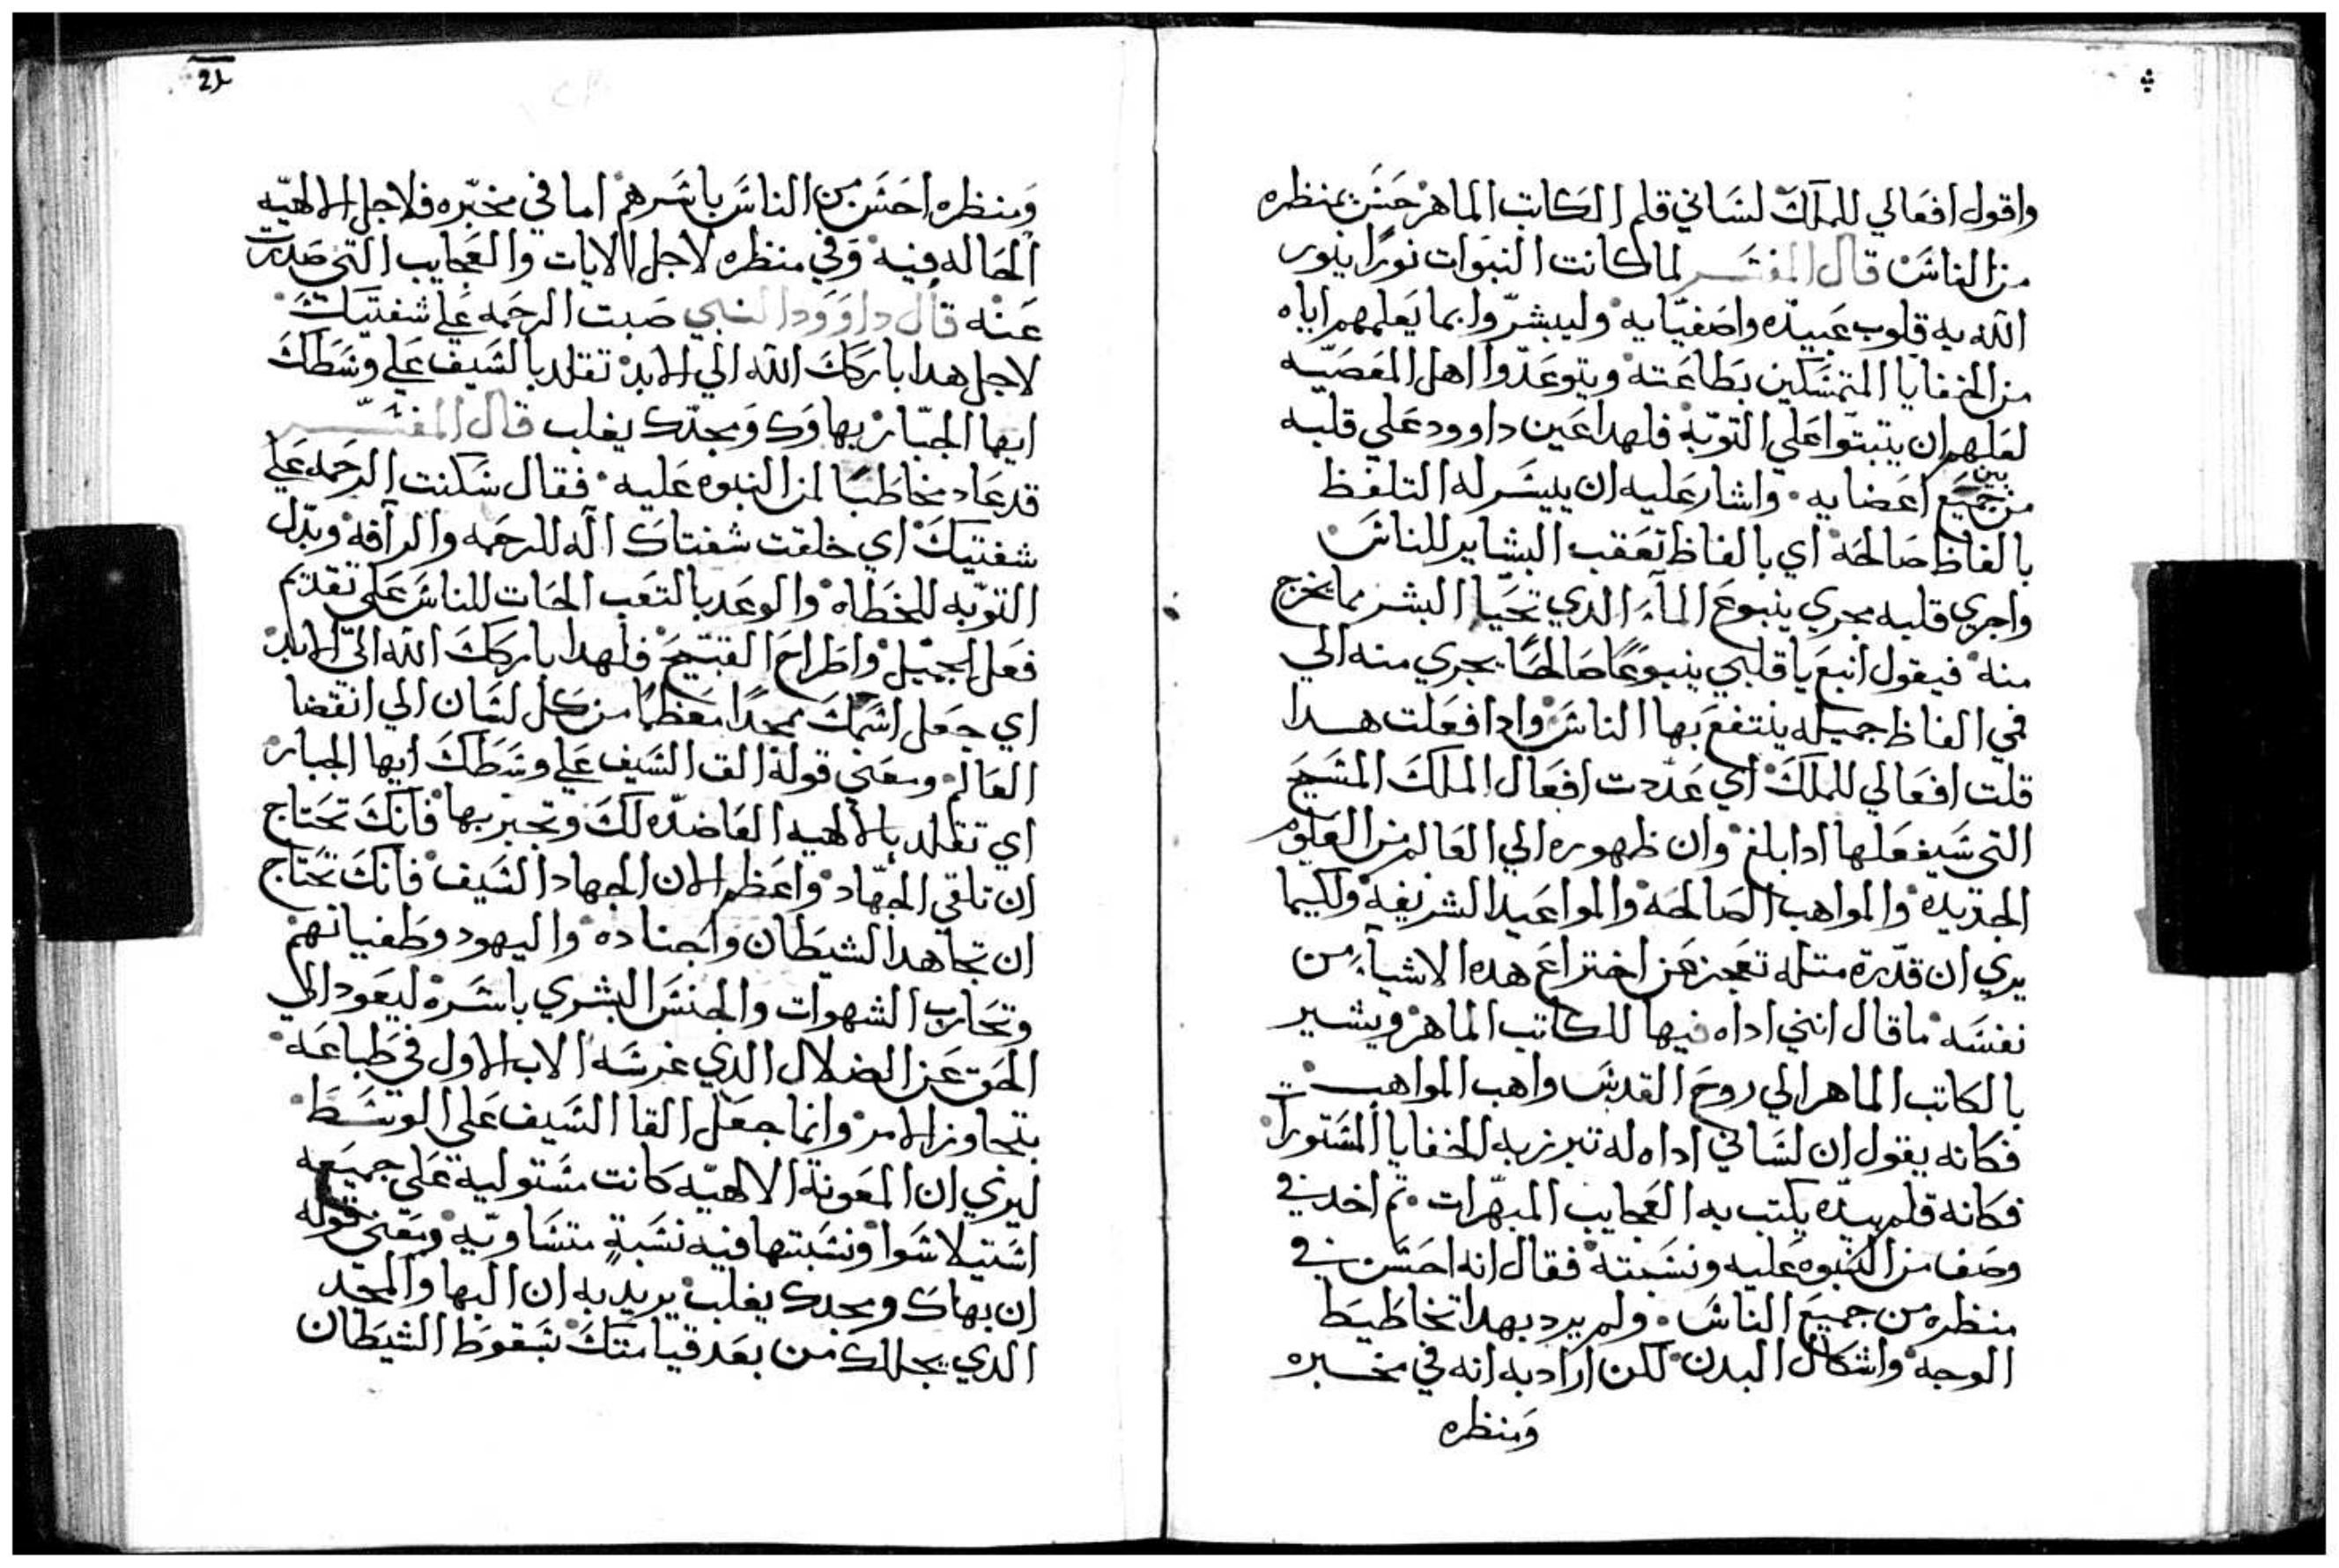 واقول افعالي للملك لساني قلم الكاتب الماهر حسن بمنظره
من الناس قال المفسر لما كانت النبوات نورا ينور
الله به قلوب عبيده واصفيايه وليبشروا بما يعلمهم اياه
من الخفايا المتمسكين بطاعته ويتوعدوا اهل المعصيه
لعلهم ان يتبتوا علي التوبة فلهدا عين داوود علي قلبه
من بين جميع اعضايه واشار عليه ان ييسر له التلفظ
بالفاظ صالحه اي بالفاظ تعقب البشاير للناس
واجري قلبه مجري ينبوع المآء الدي تحيا البشر مما يخرج
منه فيقول انبع يا قلبي ينبوعا صالحا يجري منه الي
في الفاظ جميله ينتفع بها الناس وادا فعلت هدا
قلت افعالي للملك اي عددت افعال الملك المسيح
التي سيفعلها ادا بلغ وان ظهوره الي العالم من العلوم
الجديده والمواهب الصالحه والمواعيد الشريفه ولكيما
يري ان قدرة متله تعجز عن اختراع هده الاشياء من
نفسه ما قال انني اداه فيها للكاتب الماهر ويشير
بالكاتب الماهر الي روح القدس واهب المواهب
فكانه يقول ان لساني اداه له تبرز به الخفايا المستورات
فكانه قلم بيده يكتب به العجايب المبهرات تم اخد في
وصف من النبوه عليه ونسبته فقال انه احسن في
منظره من جميع الناس ولم يرد بهدا تخاطيط
الوجه واشكال البدن لكن اراد به انه في مخبره
ومنظره
21
ومنظره احسن من الناس باسرهم اما في مخبره فلاجل الالهيه
الحاله فيه وفي منظره لاجل الايات والعجايب التي صدرت
عنه قال داوود النبي صبت الرحمه علي شفتيك
لاجل هدا باركك الله الي الابد تقلد بالسيف علي وسطك
ايها الجبار بهاوك ومجدك يغلب قال المفسر
قد عاد مخاطبا لمن النبوه عليه فقال سكنت الرحمه علي
شفتيك اي خلقت شفتاك اله للرحمه والرآفه وبدل
التوبه للخطاه والوعد بالتعب الحات للناس علي تقديم
فعل الجميل واطراح القبيح فلهدا باركك الله الي الابد
اي جعل اسمك ممجدا معظما من كل لسان الي انقضا
العالم ومعني قوله الق السيف علي وسطك ايها الجبار
اي تقلد بالالهيه العاضده لك وتجبر بها فانك تحتاج
ان تلقي الجهاد واعظم الان الجهاد السيف فانك تحتاج
ان تجاهد الشيطان واجناده واليهود وطغيانهم
وتحارب الشهوات والجنس البشري باسره ليعود الي
الحق عن الضلال الدي غرسه الاب الاول في طباعه
بتجاوز الامر وانما جعل القا السيف علي الوسط
ليري ان المعونة الالهيه كانت مستوليه علي جميعه
استيلا سوا ونسبتها فيه نسبة متساويه ومعني قوله
ان بهاك ومجدك يغلب يريد به ان البها والمجد
الدي يجللك من بعد قيامتك بسقوط الشيطان